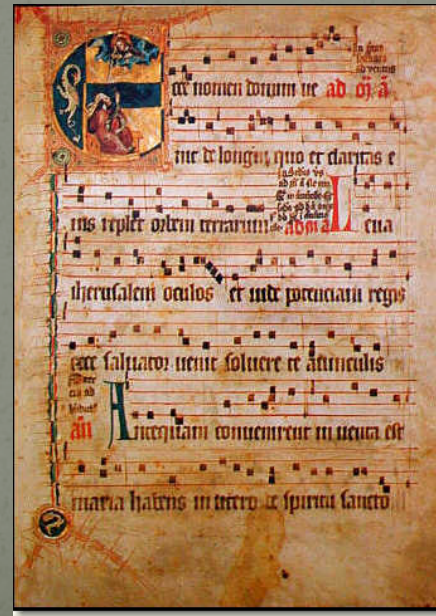 Ecce nomen domini ue ad
nit de longin quo et claritas e
ius replet orbem terrarum Leua
iherusalem oculos et uide potenciam regis
ecce saluator uenit soluere te a uinculis
an Antequam conuenirent inuenta est
maria habens in utero de spiritu sancto